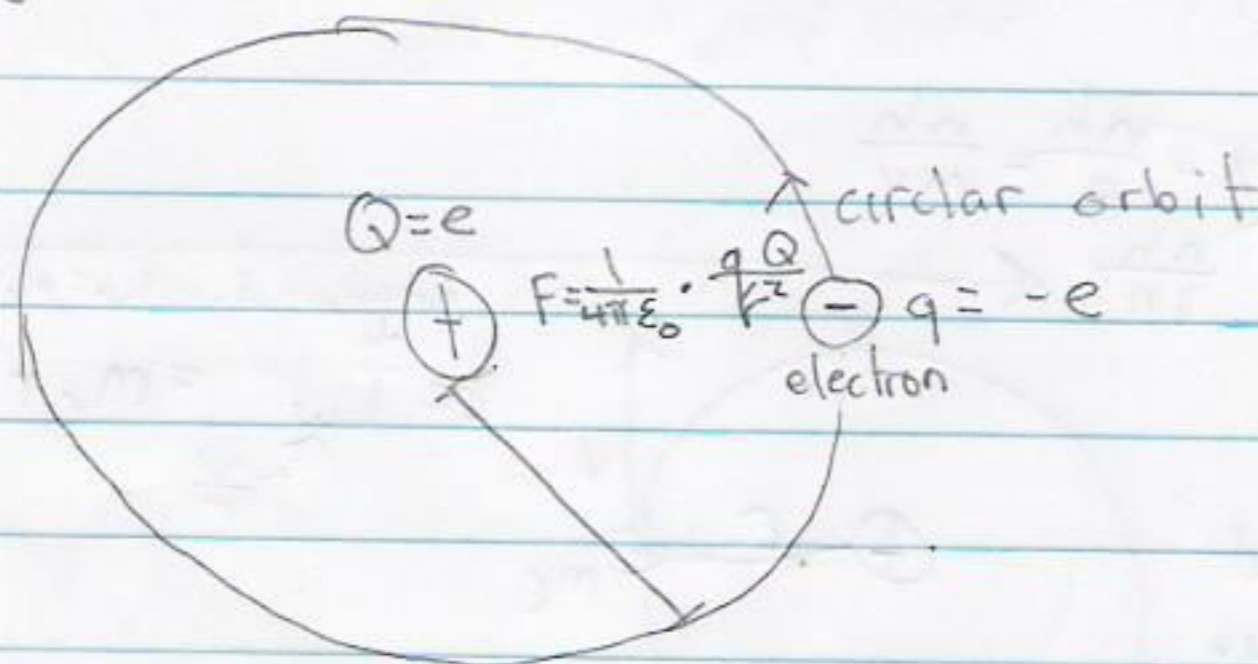 circlar orbit
Q=e
+ F=1/4πε₀ · qQ/r² − q = -e
electron